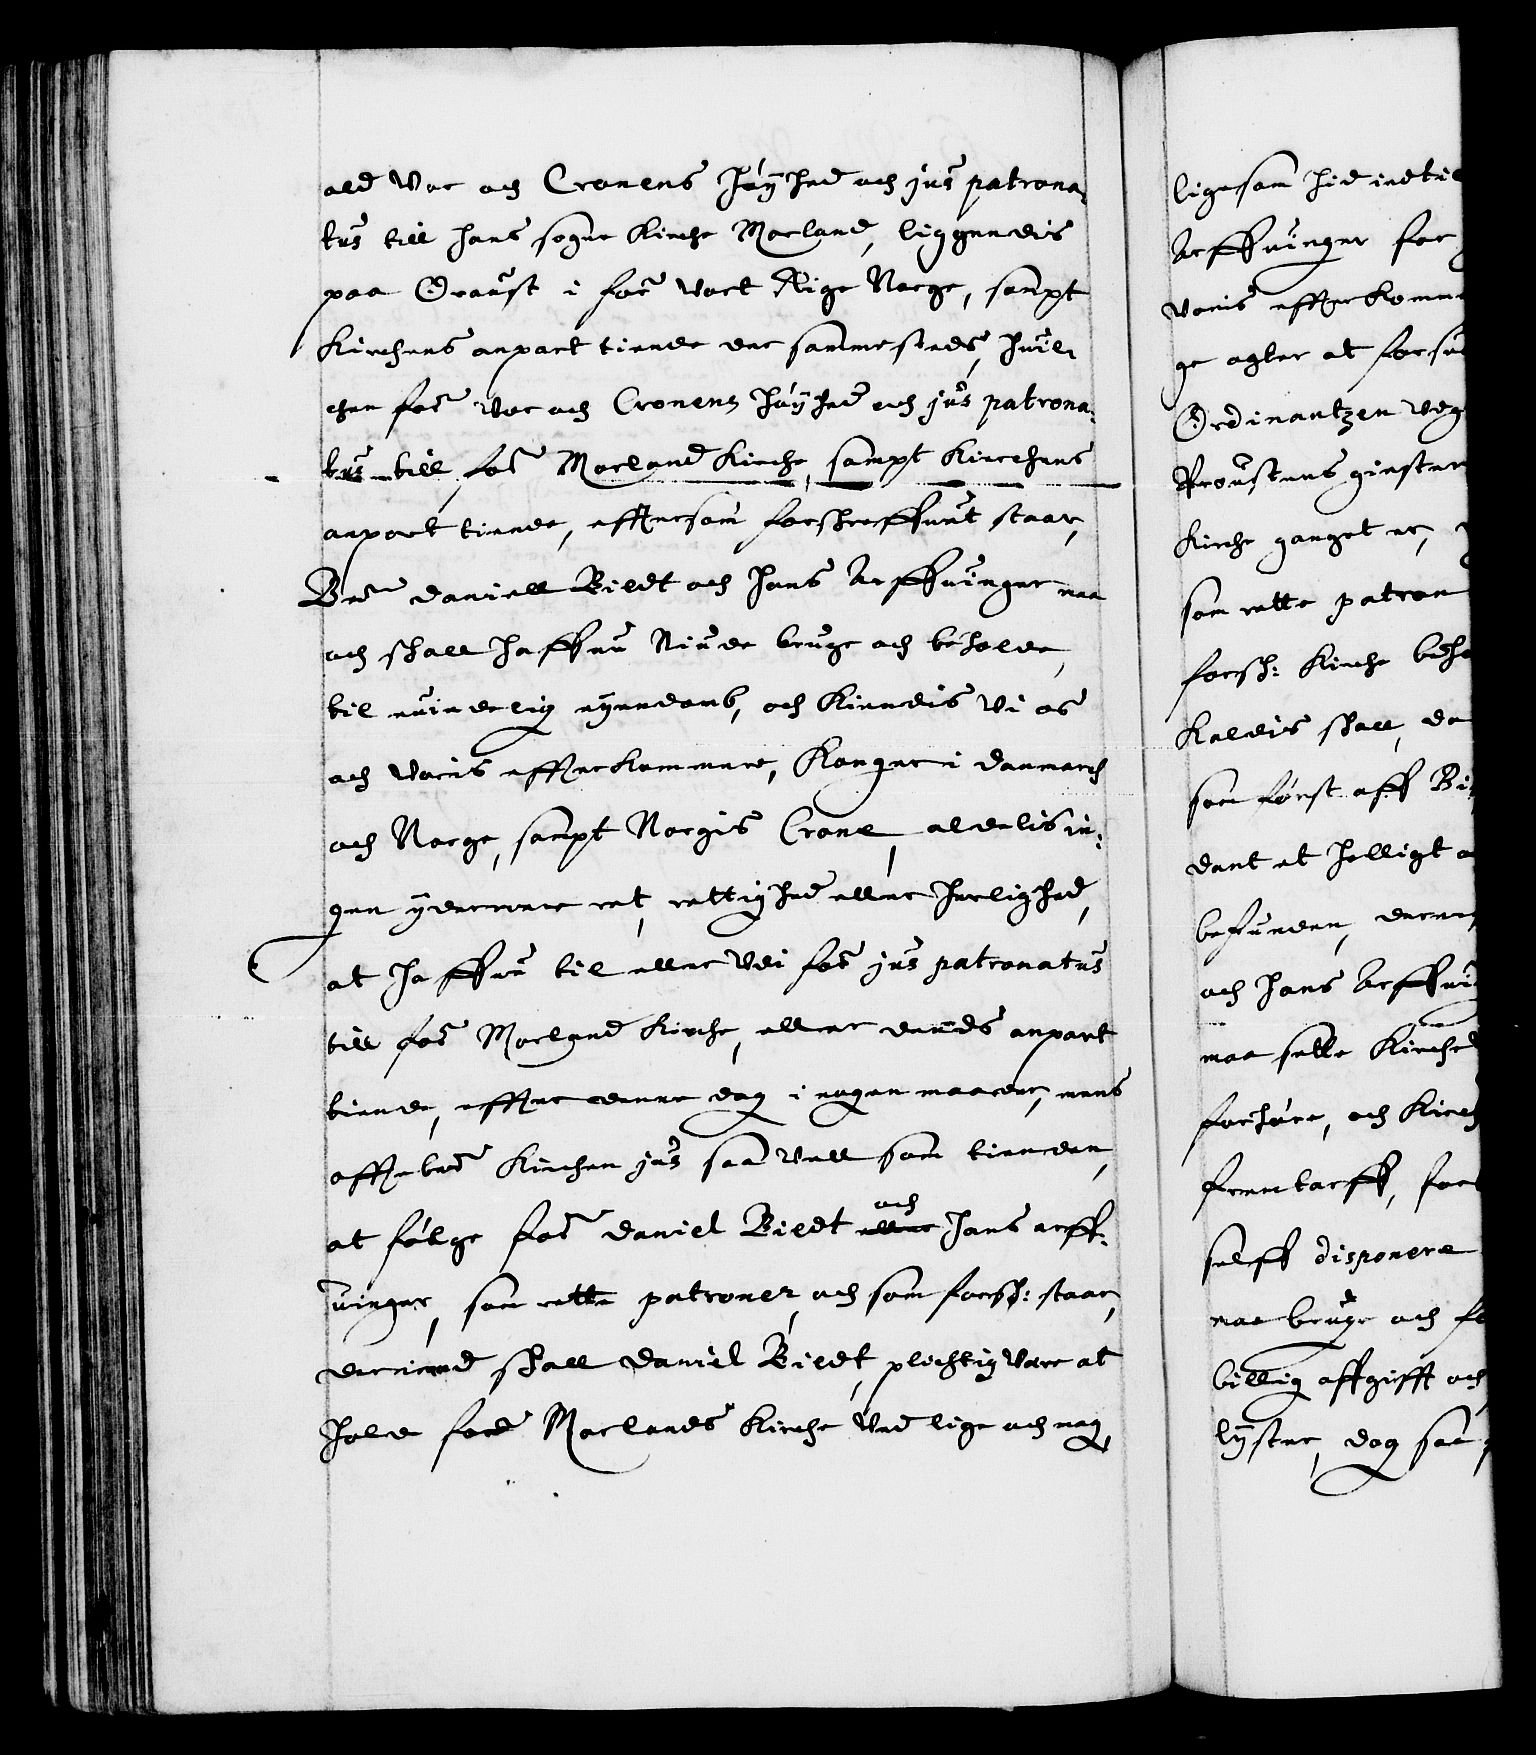 ald Vor och Cronens Høyhed och jus patrona,
tus till hans sogne Kirche Morland, liggendis
paa Oroust i for: vort Rige Norge, sampt
Kirchens anpart tiende der sammesteds, huil,
chen for: Vor och Cronens Høyhed och jus patrona,
tus till for: Morland Kirche, sampt Kirchens
anport tiende, efftersom forschreffuit staar,
Bed: daniell Bildt och hans Arffuinger maa
och schall haffue Niude bruge och beholde,
til euindelig eyendomb, och Kiendis Vi os
och Voris effterkommere, Konger i danmarch
och Norge, sampt Norgis Crone, aldelis in,
gen ydermere ret, rettighed eller herlighed,
at haffue til eller Vdi for: jus patronatus
till for: Morland Kirche, eller dends anpart
tiende, effter denne dag i nogen maader, mens
offtebed: Kirchen jus saa Vell som tienden,
at følge for: daniel Bildt och eller hans arff,
uinger, som rette patroner, och som forsch: staar,
derimod schall Daniel Bildt, plichtig Vere at
holde ford Morlands Kirche Ved lige och mag,
ligesom hid indtil
Arffuinger for
voris effterkomm
ge agter at forsu
Ordinantzen veg
Proustens giester
Kirche ganget er,
som rette patron
forsch: Kirche beho
Kaldis schall, da
som først aff Bi
dant et helligt
befunden, derm
och hans Arffui
maa sette Kirche
forhøre, och Kirch
fremtarff, for
selff disponere
maa bruge och fo
billig affgifft och
lyster, dog saa